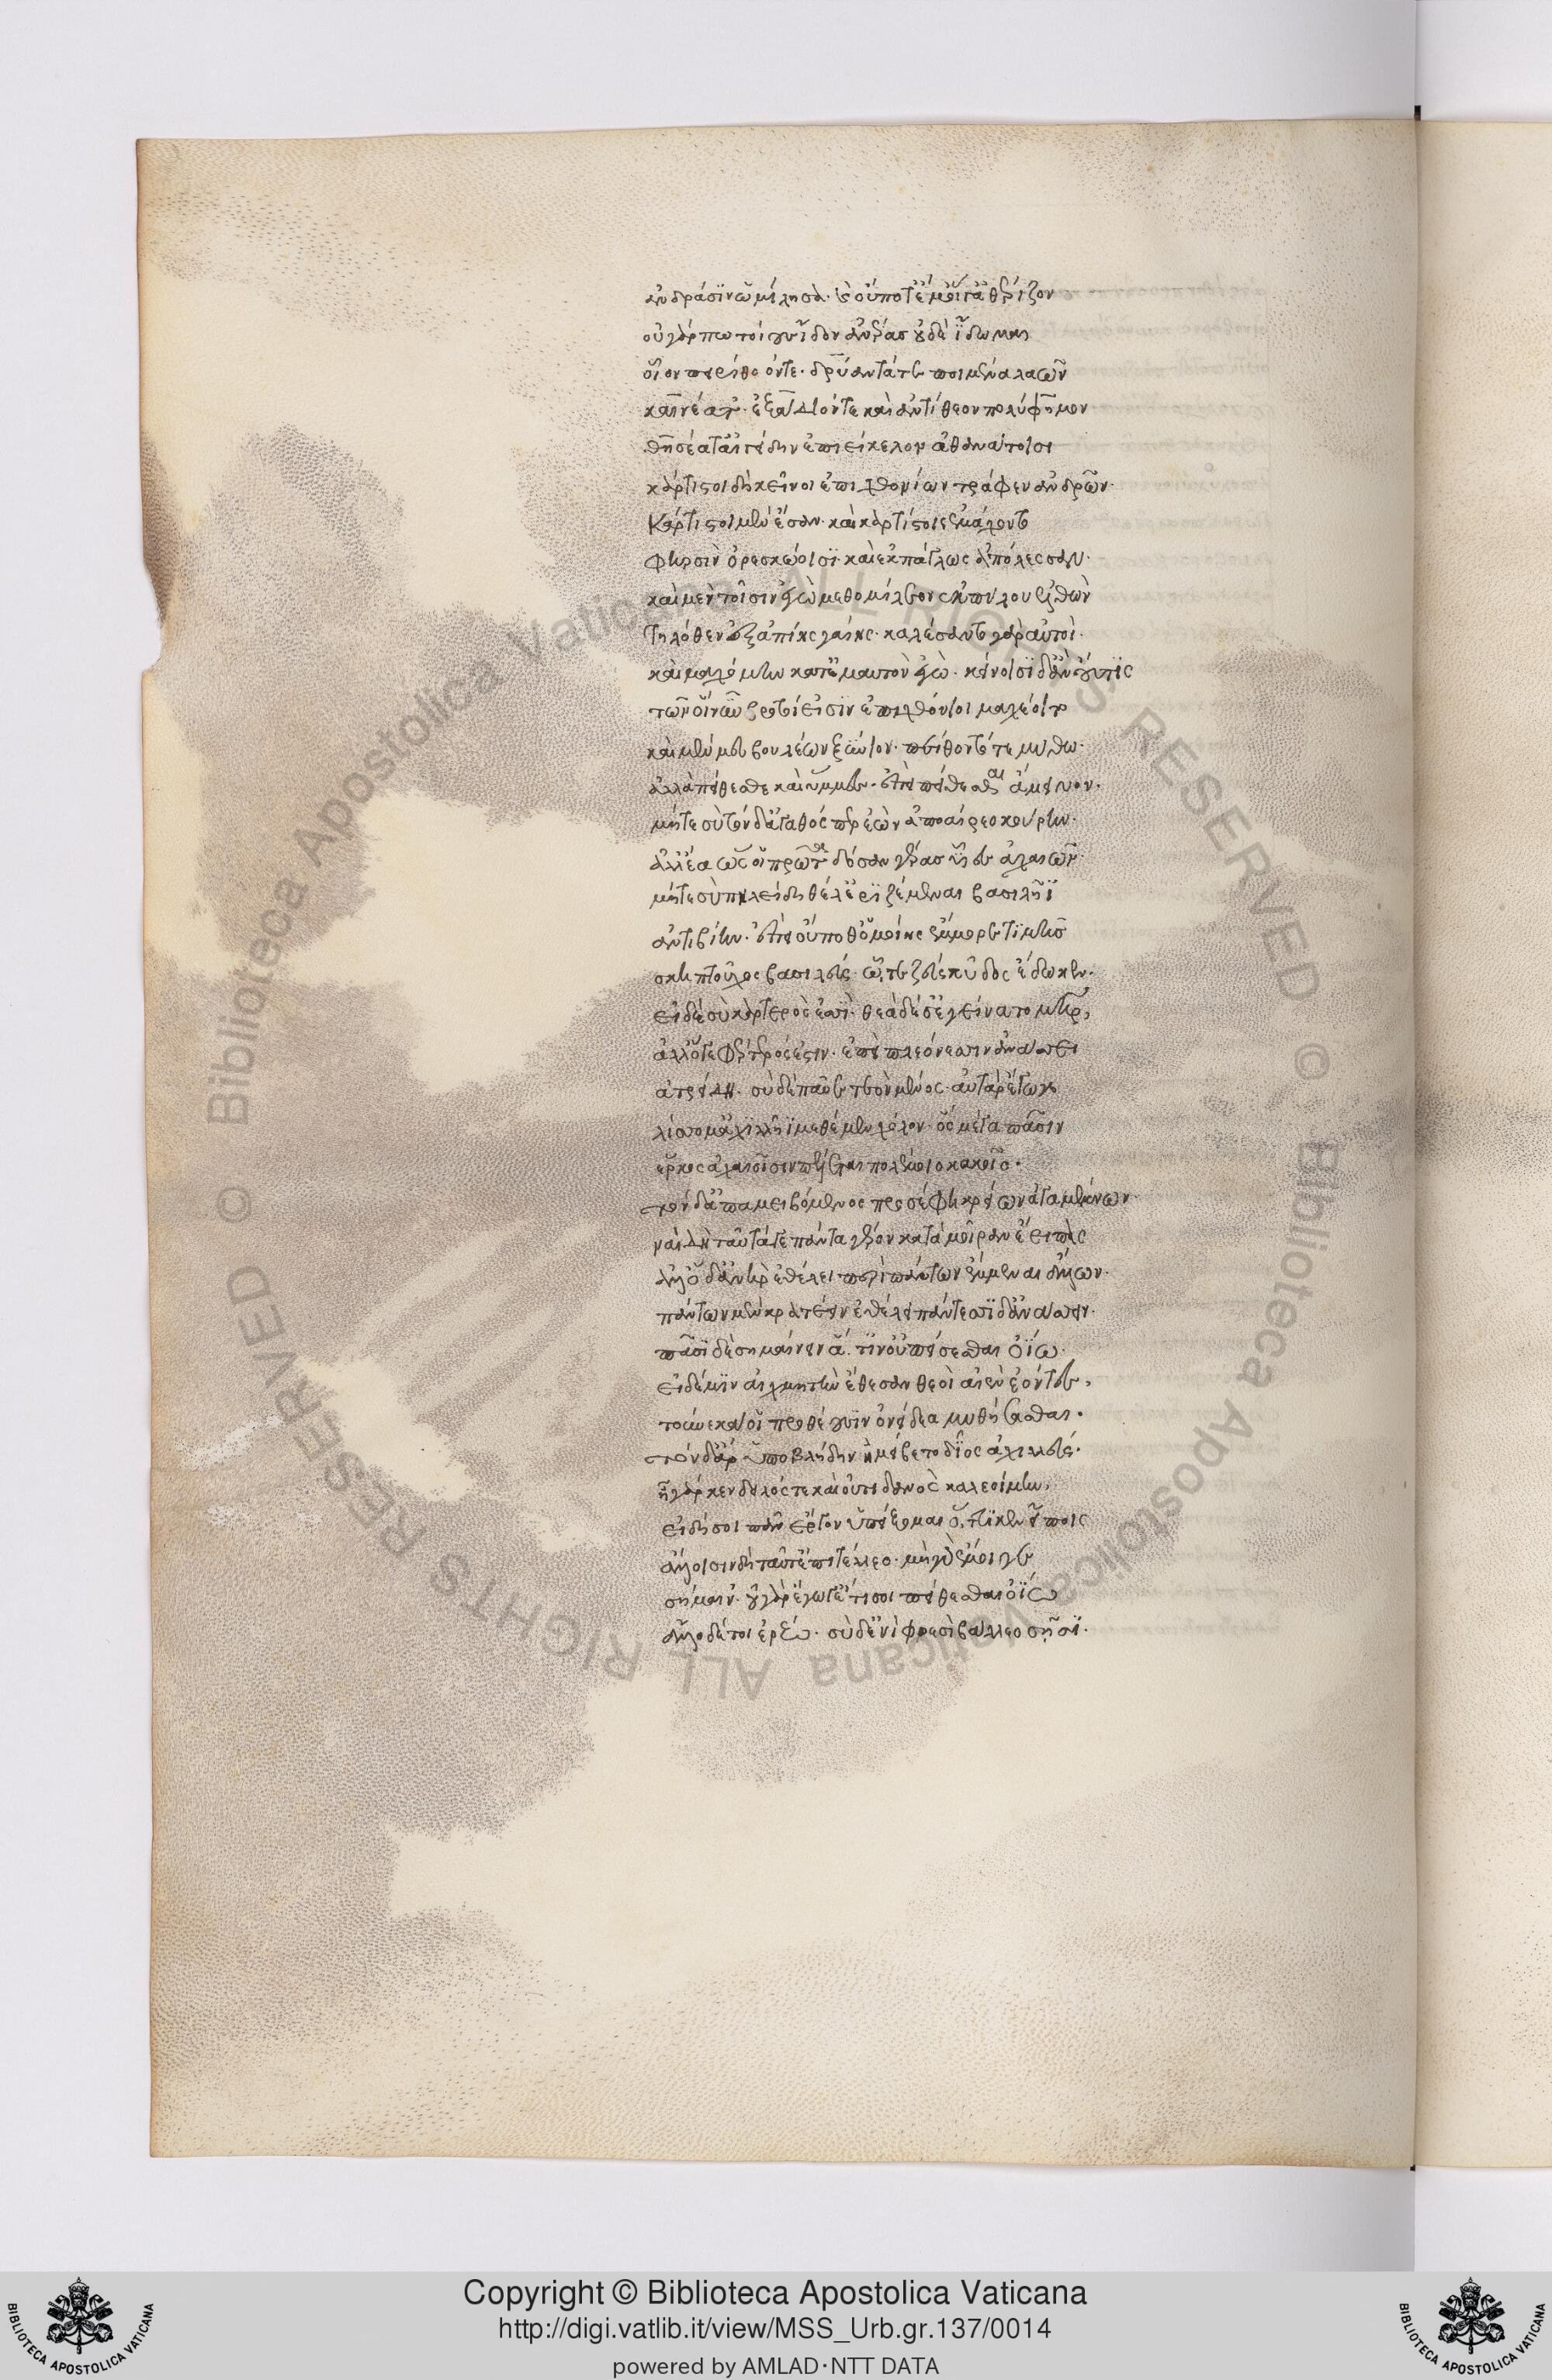 ἀνδράσιν ὡμίλησα· καὶ οὔποτέ μ' οἵγ' ἀθέριζον
οὐ γάρ πω τοίους ἴδον ἀνέρας οὐδὲ ἴδωμαι
οἷον πειρίθοόν τε· δρύαντά τε ποιμένα λαῶν
καινέα τ' ἐξάδιόν τε καὶ ἀντίθεον πολύφημον
θησέα τ' αἰγείδην ἐπιείκελον ἀθανάτοισι
κάρτιστοι δὴ κεῖνοι ἐπιχθονίων τράφεν ἀνδρῶν·
κάρτιστοι μὲν ἔσαν· καὶ καρτίστοις ἐμάχοντο
φηρσὶν ὀρεσκώοισι· καὶ ἐκπάγλως ἀπόλεσσαν·
καὶ μὲν τοῖσιν ἐγὼ μεθομίλεον ἐκ πύλου ἐλθὼν
τηλόθεν ἐξ ἀπίης γαίης· καλέσαντο γὰρ αὐτοί·
καὶ μαχόμην κατ' ἔμαυτὸν ἐγώ· κείνοισι δ' ἂν οὔτις
τῶν οἳ νῦν βροτοί εἰσιν ἐπιχθόνιοι μαχέοιτο
καὶ μέν μευ βουλέων ξύνιον· πείθοντό τε μύθω·
ἀλλὰ πείθεσθε καὶ ὔμμες· ἐπεὶ πείθεσθαι ἄμεινον·
μήτε σὺ τόνδ' ἀγαθός περ ἐὼν ἀποαίρεο κούρην·
ἀλλ' ἔα ὥς οἱ πρῶτα δόσαν γέρας υἷες ἀχαιῶν·
μήτε σὺ πηλείδη θέλ' ἐριζέμεναι βασιλῆϊ
ἀντιβίην· ἐπεὶ οὔποθ' ὁμοίης ἔμμορε τιμῆς
σκηπτοῦχος βασιλεύς· ὧτε ζεὺς κῦδος ἔδωκεν·
εἰ δὲ σὺ καρτερός ἐσσι· θεὰ δέ σε γείνατο μήτηρ,
ἀλλ' ὅγε φέρτερός ἐστιν· ἐπεὶ πλεόνεσσιν ἀνάσσει
ἀτρείδη· σὺ δὲ παῦε τεὸν μένος· αὐτὰρ ἔγωγε
λίσσομ' ἀχιλλῆϊ μεθέμεν χόλον· ὃς μέγα πᾶσιν
ἕρκος ἀχαιοῖσιν πέλεται πολέμοιο κακοῖο·
τὸν δ' ἀπαμειβόμενος προσέφη κρείων ἀγαμέμνων·
ναὶ δὴ ταῦτά γε πάντα γέρον κατὰ μοῖραν ἔειπες
ἀλλ' ὅδ' ἀνὴρ ἐθέλει περὶ πάντων ἔμμεναι ἄλλων·
πάντων μὲν κρατέειν ἐθέλει πάντεσσι δ' ἀνάσσειν·
πᾶσι δὲ σημαίνειν ἅ τιν' οὐ πείσεσθαι ὀΐω·
εἰ δέ μιν αἰχμητὴν ἔθεσαν θεοὶ αἰὲν ἐόντες,
τοὔνεκά οἱ προθέουσιν ὀνείδεα μυθήσασθαι·
τὸν δ' ἄρ' ὑποβλήδην ἠμείβετο δῖος ἀχιλλεύς·
ἦ γάρ κεν δειλός τε καὶ οὐτιδανὸς καλεοίμην,
εἰ δή σοι πᾶν ἔργον ὑπείξομαι ὅ,ττι κεν εἴποις
ἄλλοισιν δὴ ταῦτ' ἐπιτέλλεο· μὴ γὰρ ἔμοιγε
σήμαιν'· οὐ γὰρ ἔγωγ' ἔτι σοι πείθεσθαι ὀΐω
ἄλλο δέ τοι ἐρέω· σὺ δ' ἐνὶ φρεσὶ βάλλεο σῇσι·
Copyright © Biblioteca Apostolica Vaticana
http://digi.vatlib.it/view/MSS_Urb.gr.137/0014
powered by AMLAD·NTT DATA
© Biblioteca Apostolica Vaticana ALL RIGHTS RESERVED
© Biblioteca Apostolica Vaticana ALL RIGHTS RESERVED
BIBLIOTECA APOSTOLICA VATICANA
BIBLIOTECA APOSTOLICA VATICANA